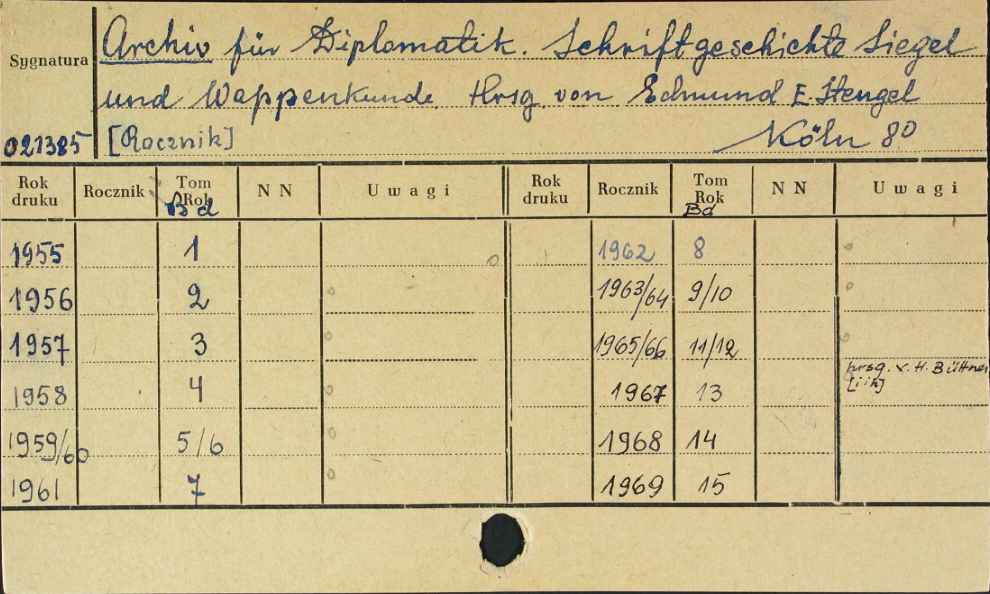 Archiv für Diplomatik. Schriftgeschichte Siegel
Sygnatura
und Wappenkunde. Hrsg. von Edmund E. Stengel
021385 [Rocznik] Köln 80
Rok druku Rocznik Tom Rok Bd N N Uwagi Rok druku Rocznik Tom Rok Bd N N Uwagi
1955 1 1962 8
1956 2 1963/64 9/10
1957 3 1965/66 11/12
hrsg. v. H. Büttner
1958 4 1967 13 [i in]
1959/60 5/6 1968 14
1961 7 1969 15